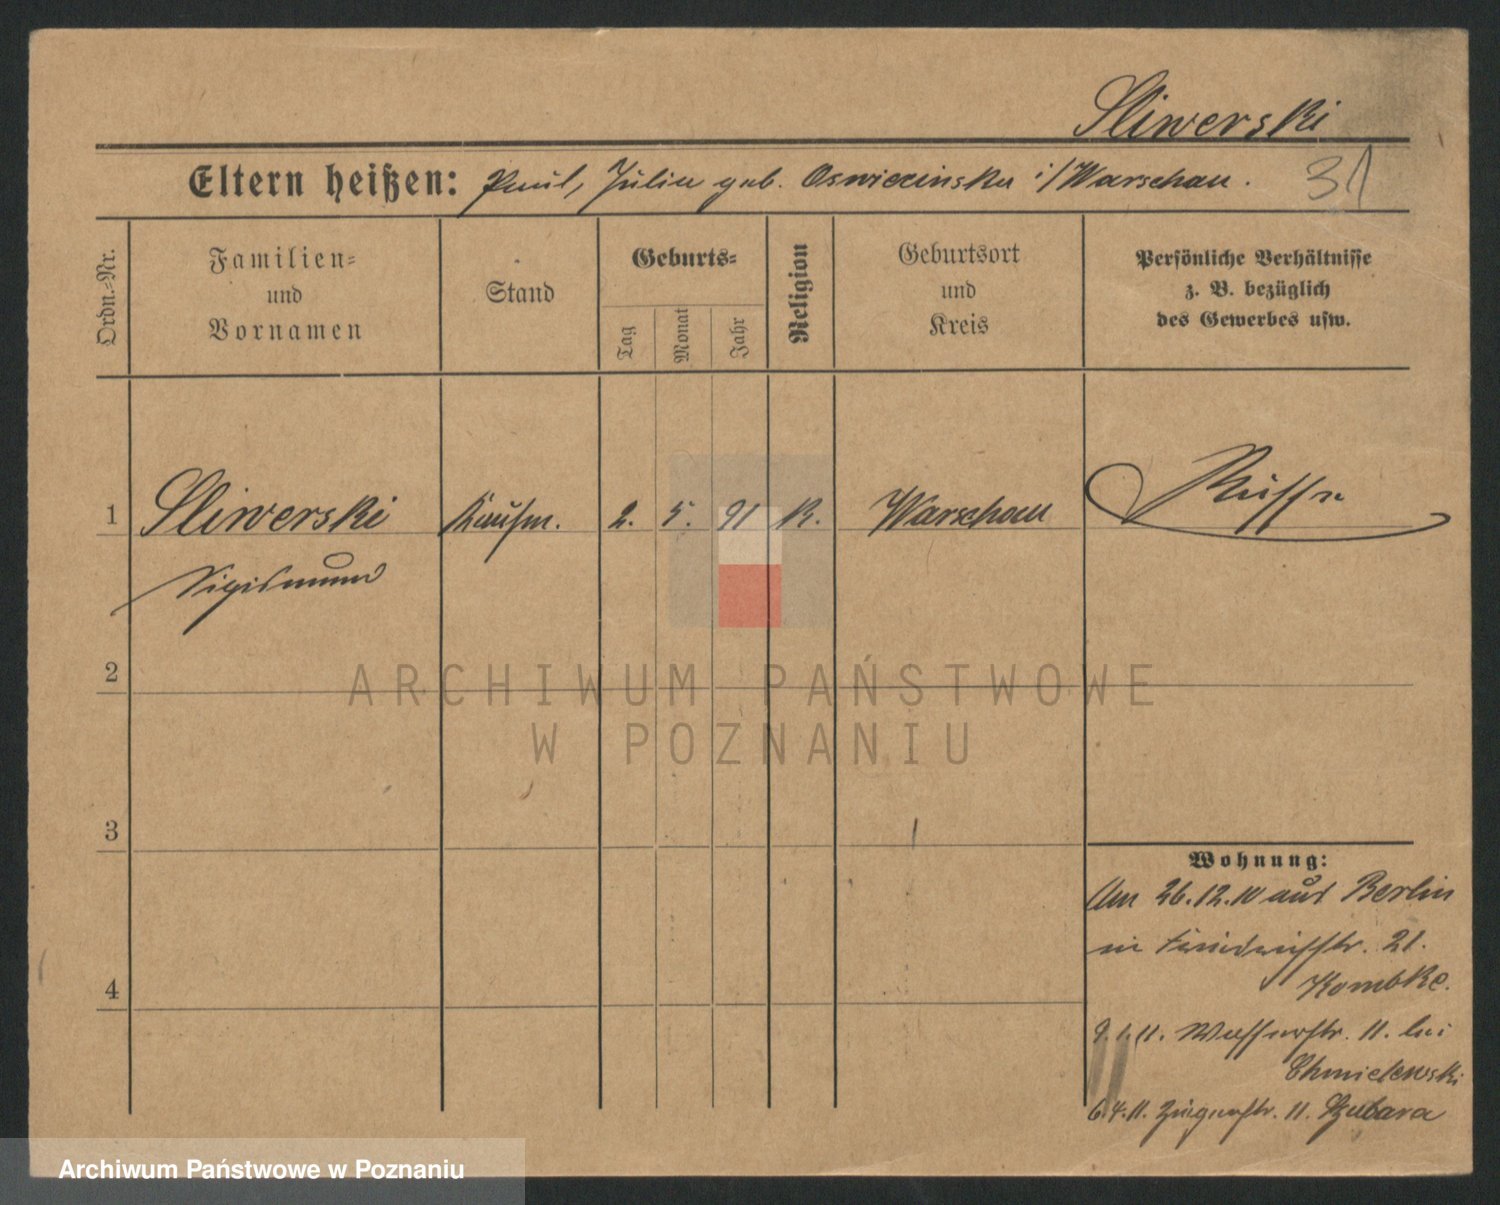 Sliwerski
Eltern heißen: Paul, Julia geb. Oswiezinska i/Warschau.
31
Ordn.-Nr.
Familien-
und
Vornamen
Stand
Geburts-
Tag
Monat
Jahr
Religion
Geburtsort
und
Kreis
Persönliche Verhältnisse
z. B. bezüglich
des Gewerbes usw.
1 Sliwerski Kaufm. 2. 5. 91 K. Warschau Russe
Sigismund
2
ARCHIWUM PAŃSTWOWE
W POZNANIU
3
Wohnung:
Am 26.12.10 aus Berlin
21.
Kombke.
4
9.1.11. Wasserstr. 11. bei
Chmielewski
6.4.11. 11.
Archiwum Państwowe w Poznaniu